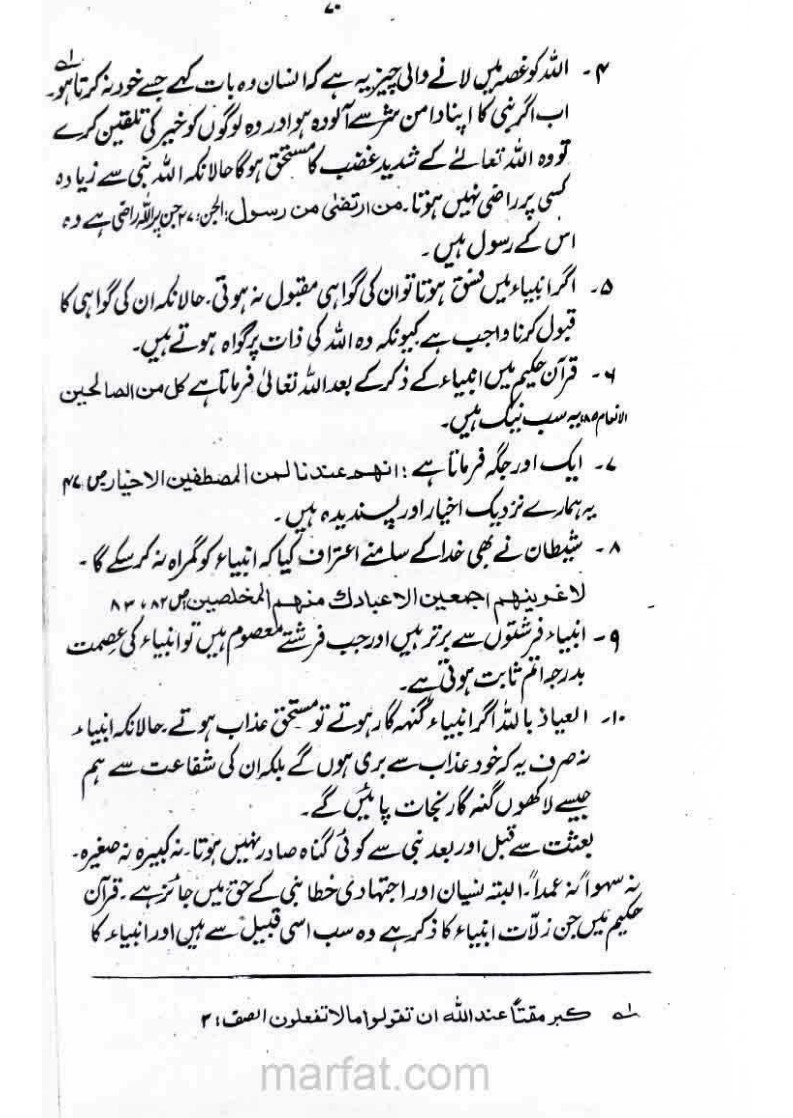 ۷۰
۴۔ اللہ کو غصہ میں لانے والی چیز یہ ہے کہ انسان وہ بات کہے جسے خود نہ کرتا ہو۔ لہ
اب اگر نبی کا اپنا دامن شر سے آلودہ ہو اور وہ لوگوں کو خیر کی تلقین کرے
تو وہ اللہ تعالےٰ کے شدید غضب کا مستحق ہوگا حالانکہ اللہ نبی سے زیادہ
کسی پر راضی نہیں ہوتا۔ من ارتضیٰ من رسول؛ الجن: ۲۷ جن پر اللہ راضی ہے وہ
اس کے رسول ہیں۔
۵۔ اگر انبیاء میں فسق ہوتا تو ان کی گواہی مقبول نہ ہوتی۔ حالانکہ ان کی گواہی کا
قبول کرنا واجب ہے کیونکہ وہ اللہ کی ذات پر گواہ ہوتے ہیں۔
۶۔ قرآن حکیم میں انبیاء کے ذکر کے بعد اللہ تعالیٰ فرماتا ہے کل من الصالحین
الانعام ۸۵ یہ سب نیک ہیں۔
۷۔ ایک اور جگہ فرماتا ہے: انهم عندنا لمن المصطفین الاخیار ص ۴۷
یہ ہمارے نزدیک اخیار اور پسندیدہ ہیں۔
۸۔ شیطان نے بھی خدا کے سامنے اعتراف کیا کہ انبیاء کو گمراہ نہ کر سکے گا۔
لاغوینهم اجمعین الا عبادك منهم المخلصین ص ۸۲، ۸۳
۹۔ انبیاء فرشتوں سے برتر ہیں اور جب فرشتے معصوم ہیں تو انبیاء کی عصمت
بدرجہ اتم ثابت ہوتی ہے۔
۱۰۔ العیاذ باللہ اگر انبیاء گنہگار ہوتے تو مستحق عذاب ہوتے۔ حالانکہ انبیاء
نہ صرف یہ کہ خود عذاب سے بری ہوں گے بلکہ ان کی شفاعت سے ہم
جیسے لاکھوں گنہ گار نجات پائیں گے۔
بعثت سے قبل اور بعد نبی سے کوئی گناہ صادر نہیں ہوتا۔ نہ کبیرہ نہ صغیرہ۔
نہ سہواً نہ عمداً۔ البتہ نسیان اور اجتہادی خطا نبی کے حق میں جائز ہے۔ قرآن
حکیم میں جن زلّات انبیاء کا ذکر ہے وہ سب اسی قبیل سے ہیں اور انبیاء کا
لہ کبر مقتاً عند اللہ ان تقولوا ما لا تفعلون الصف: ۳
marfat.com